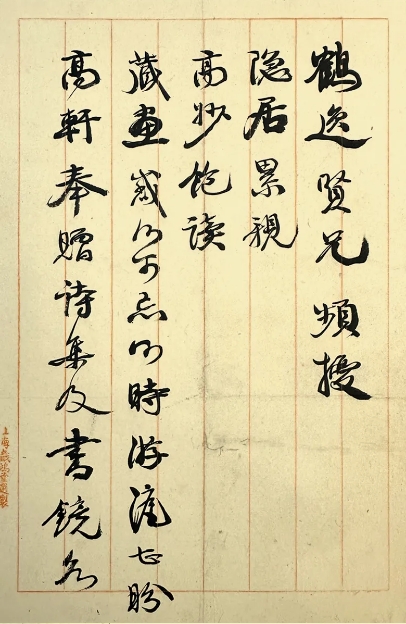 鶴逸賢兄頻擾
隐居累親
高妙飽读
藏畫感何可忘何時游滬盼
高軒奉贈詩集及書鏡各
上海